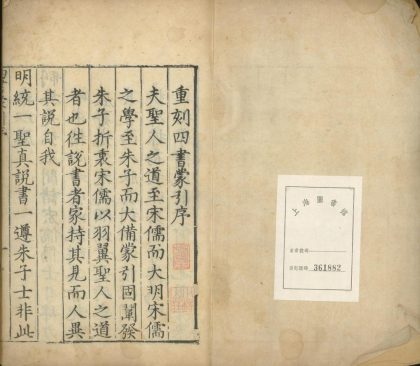 重刻四書蒙引序
夫聖人之道至宋儒而大明宋儒
之學至朱子而大備蒙引固闡發
朱子折衷宋儒以羽翼聖人之道
者也徃說書者家持其見而人異
其說自我
明統一聖真說書一遵朱子士非此
上海圖書館
361882